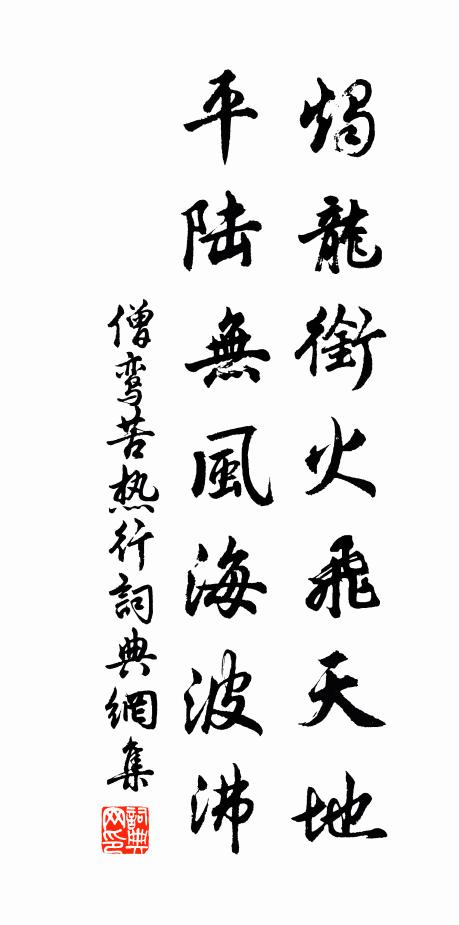 燭龍銜火飛天地
平陆無風海波沸
僧鸾苦热行詞典網集
詞典网印